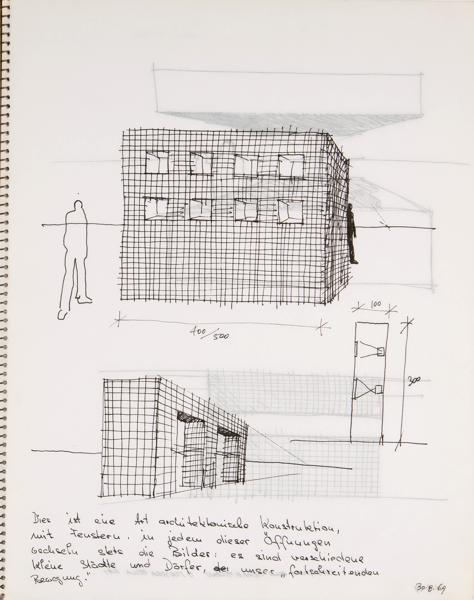 400/500
100
300
Dies ist eine Art architektonische Konstruktion,
mit Fenstern. in jedem dieser Öffnungen
wechseln stets die Bilder: es sind verschiedene
kleine Städte und Dörfer, der unser „fortschreitenden
Bewegung."
30.8.69